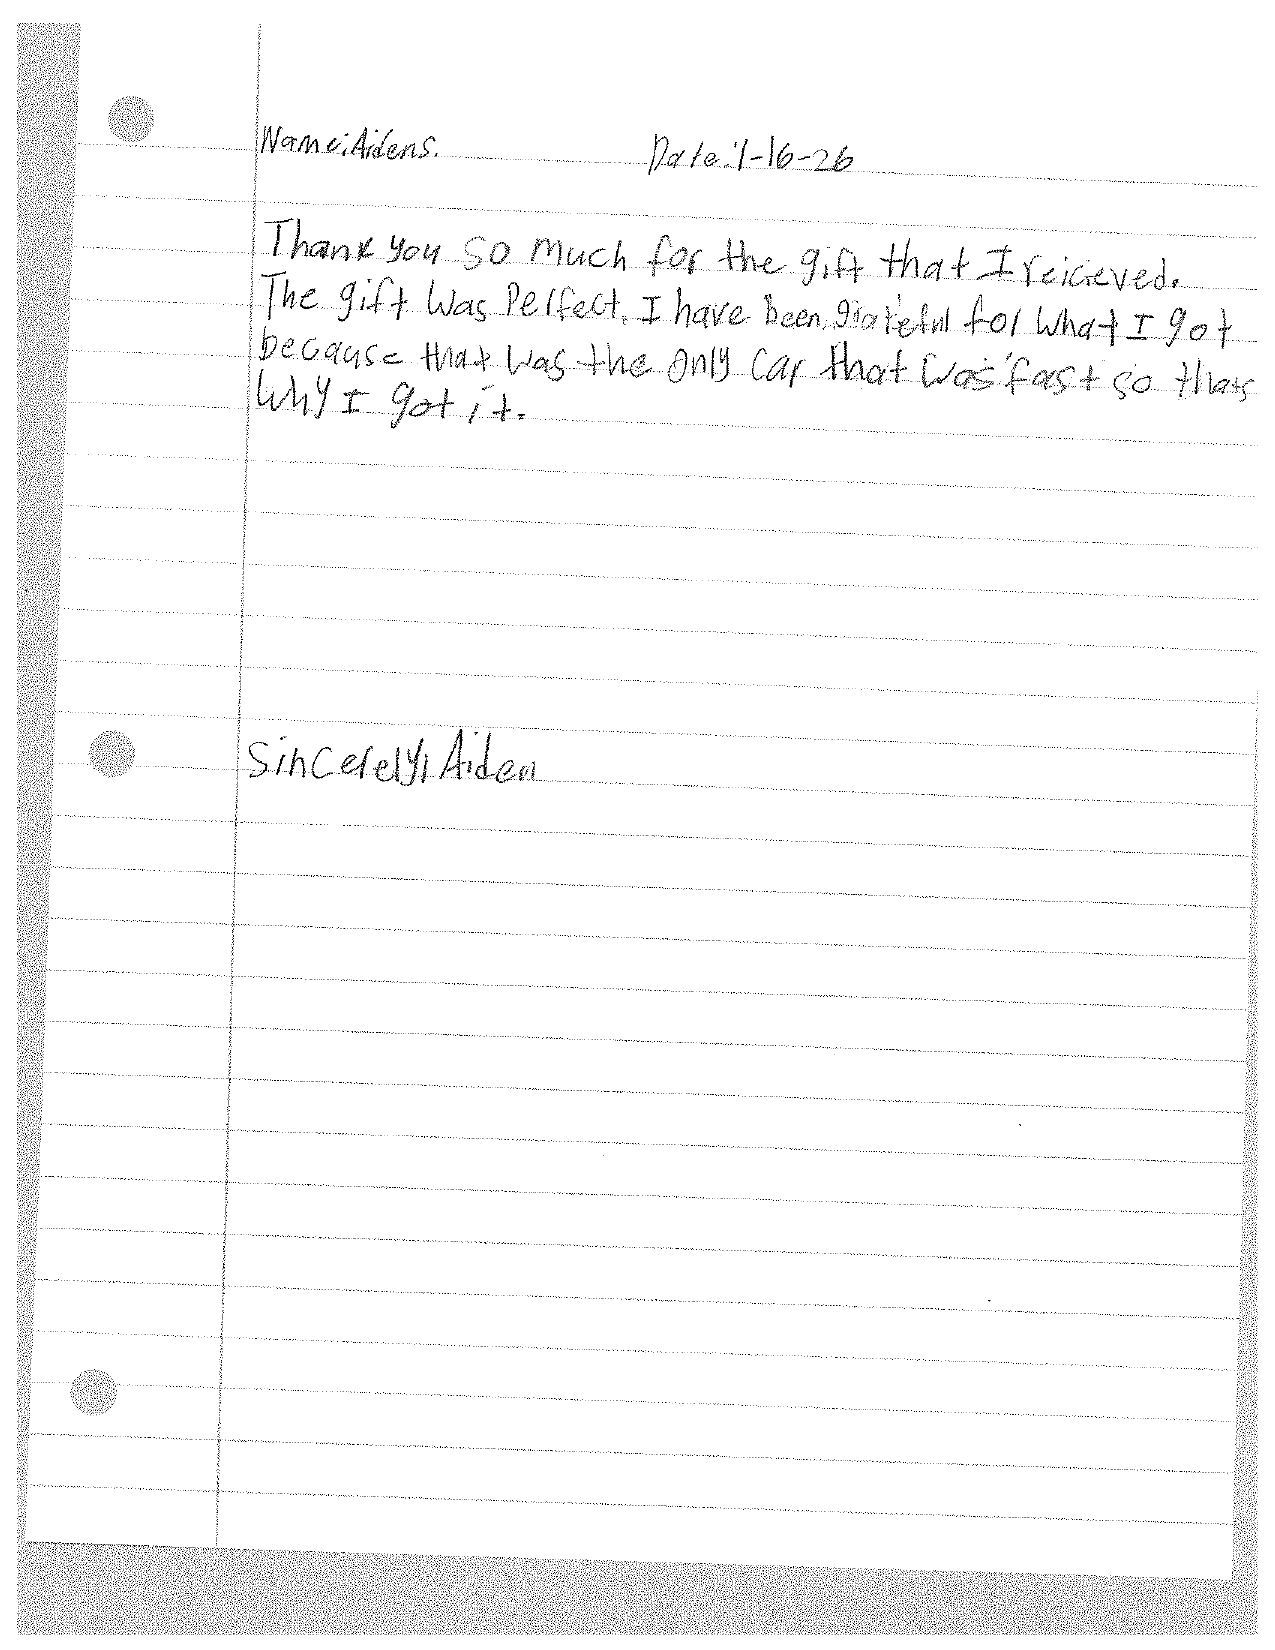 Name: Aiden S. Date: 1-16-26
Thank you so much for the gift that I reicieved.
The gift was perfect. I have been grateful for what I got
because that was the only car that was fast so thats
why I got it.
Sincerely, Aiden